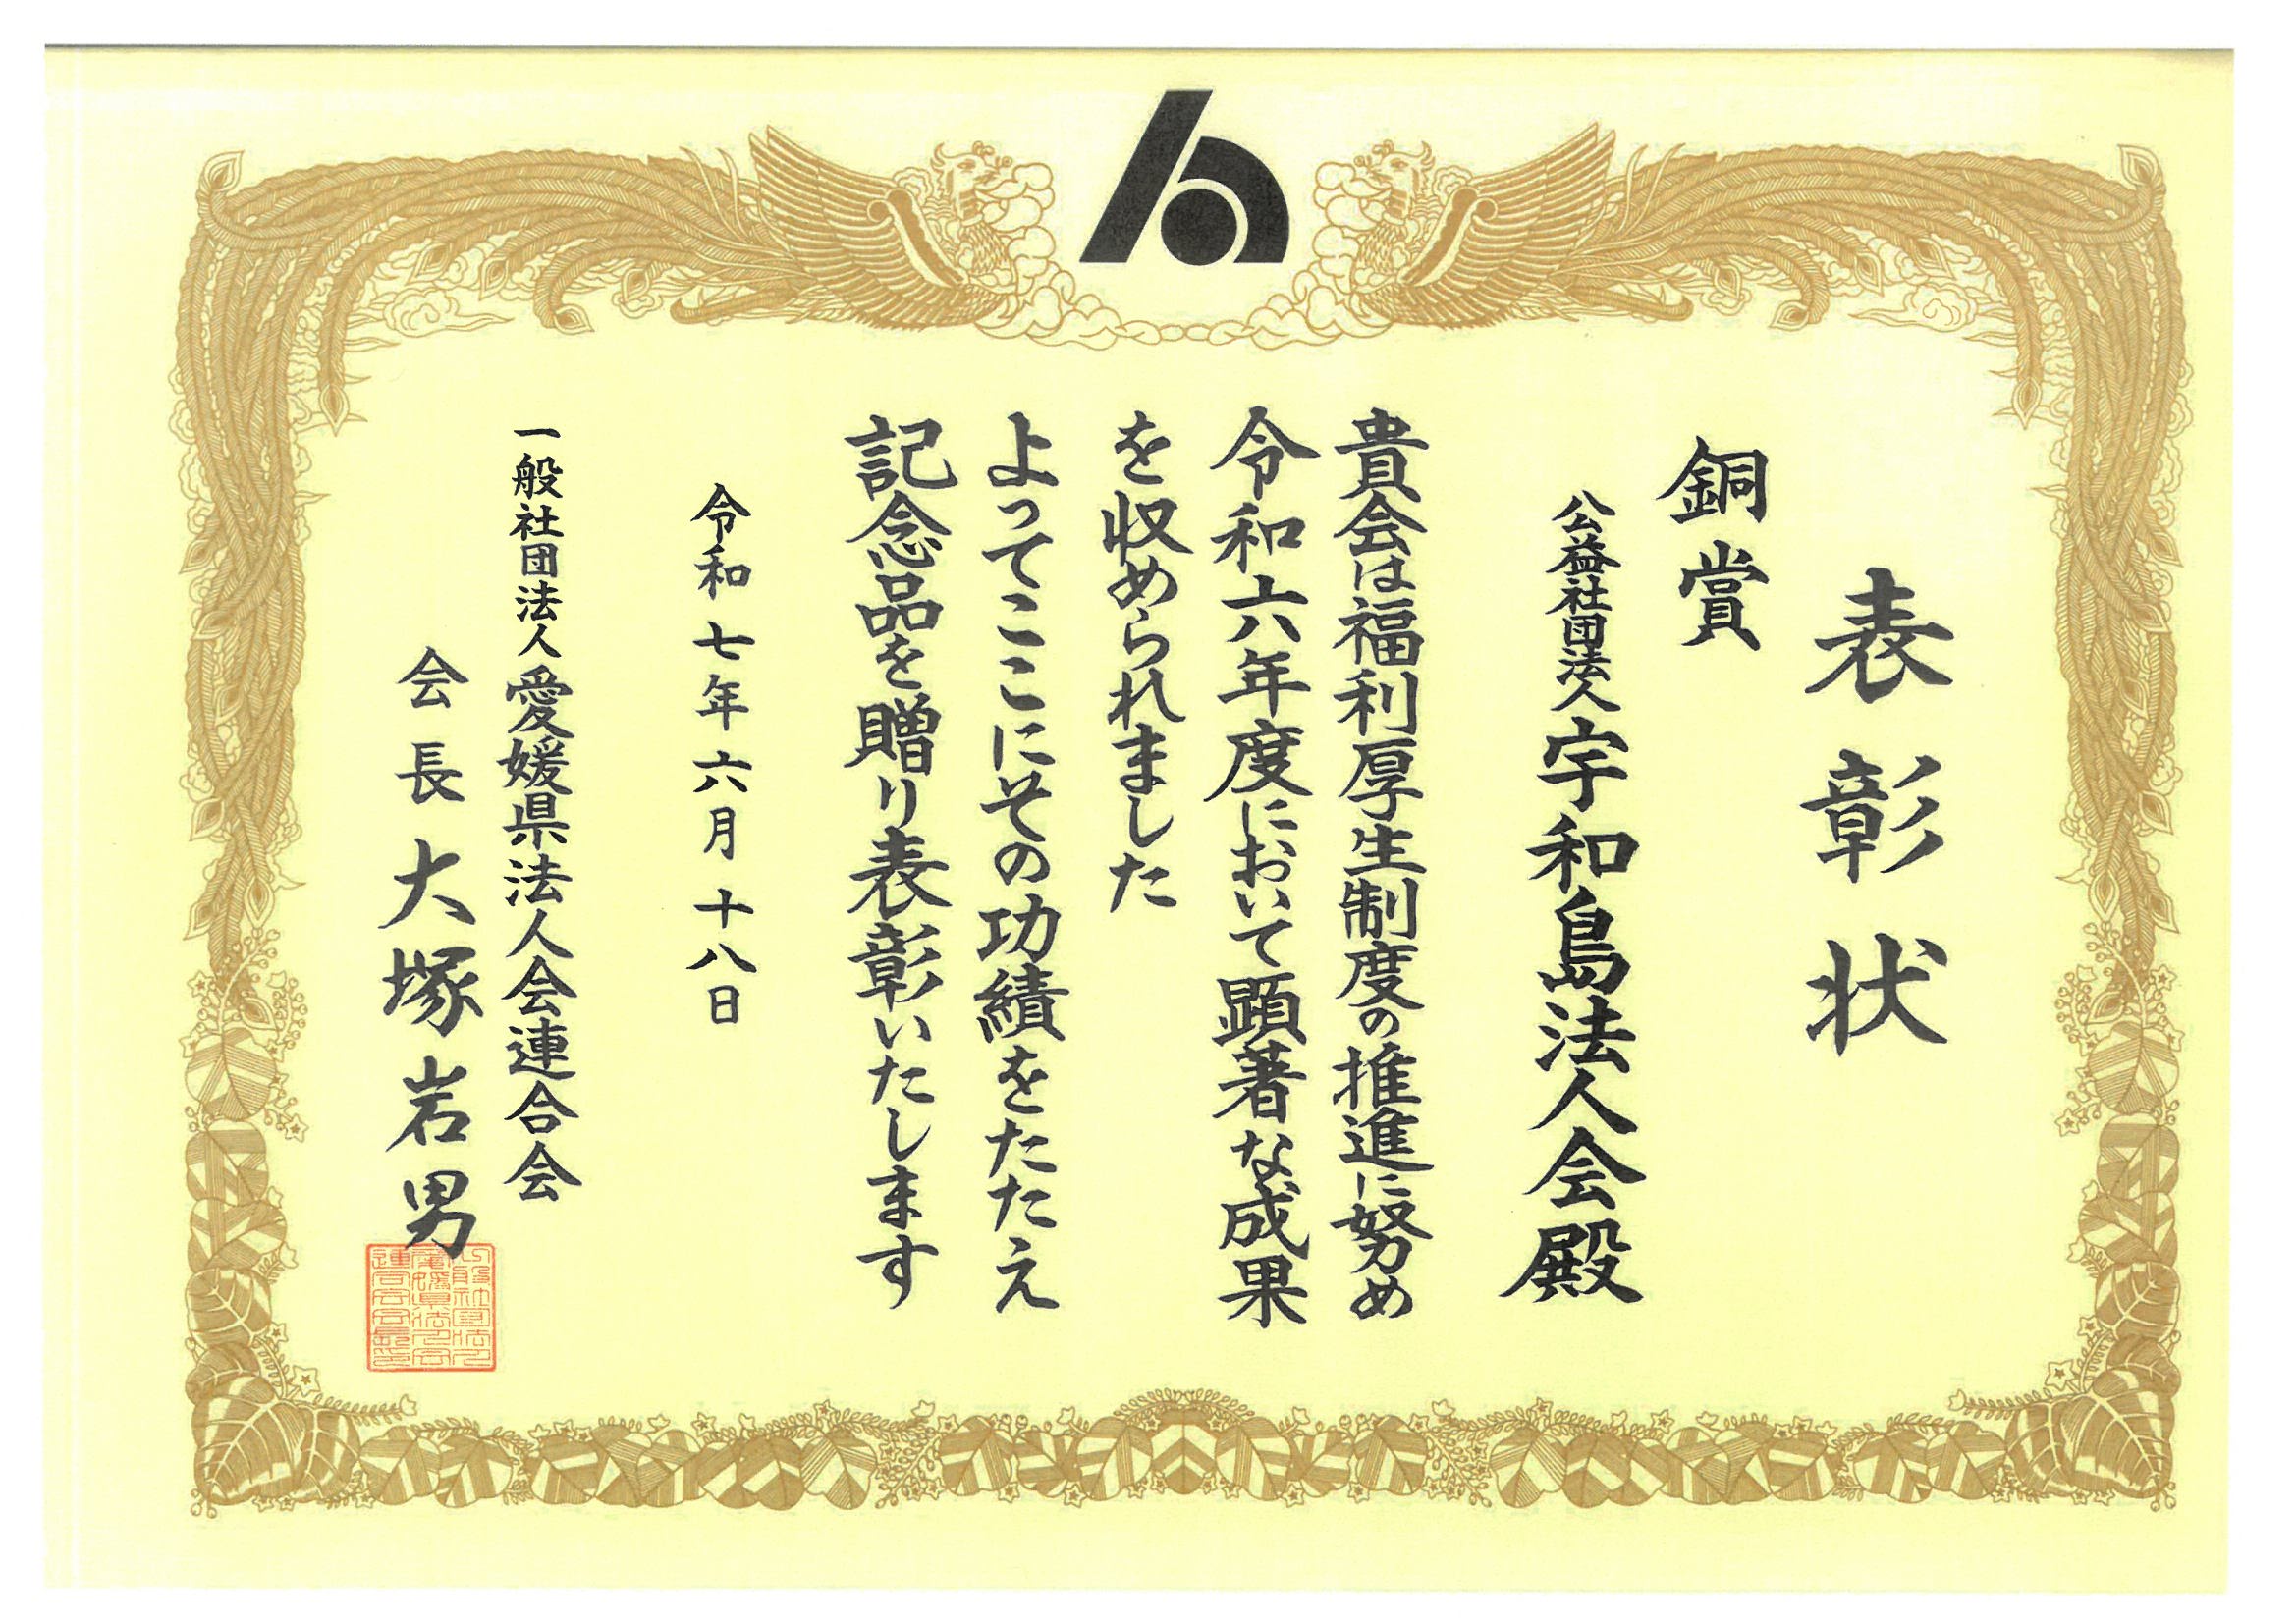 表彰状
銅賞
公益社団法人宇和島法人会殿
貴会は福利厚生制度の推進に努め
令和六年度において顕著な成果
を収められました
よってここにその功績をたたえ
記念品を贈り表彰いたします
令和七年六月十八日
一般社団法人愛媛県法人会連合会
会長大塚岩男
一般社団法人
愛媛県法人会
連合会会長印